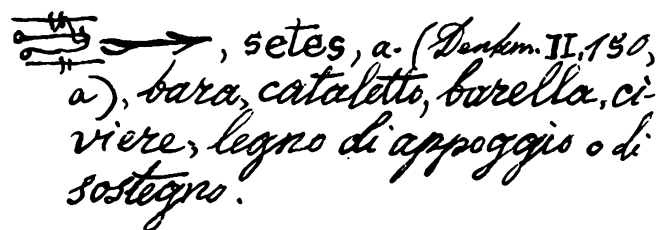 , setes, a. (Denkm. II, 150,
a), bara, cataletto, barella, ci-
viere, legno di appoggio o di
sostegno.